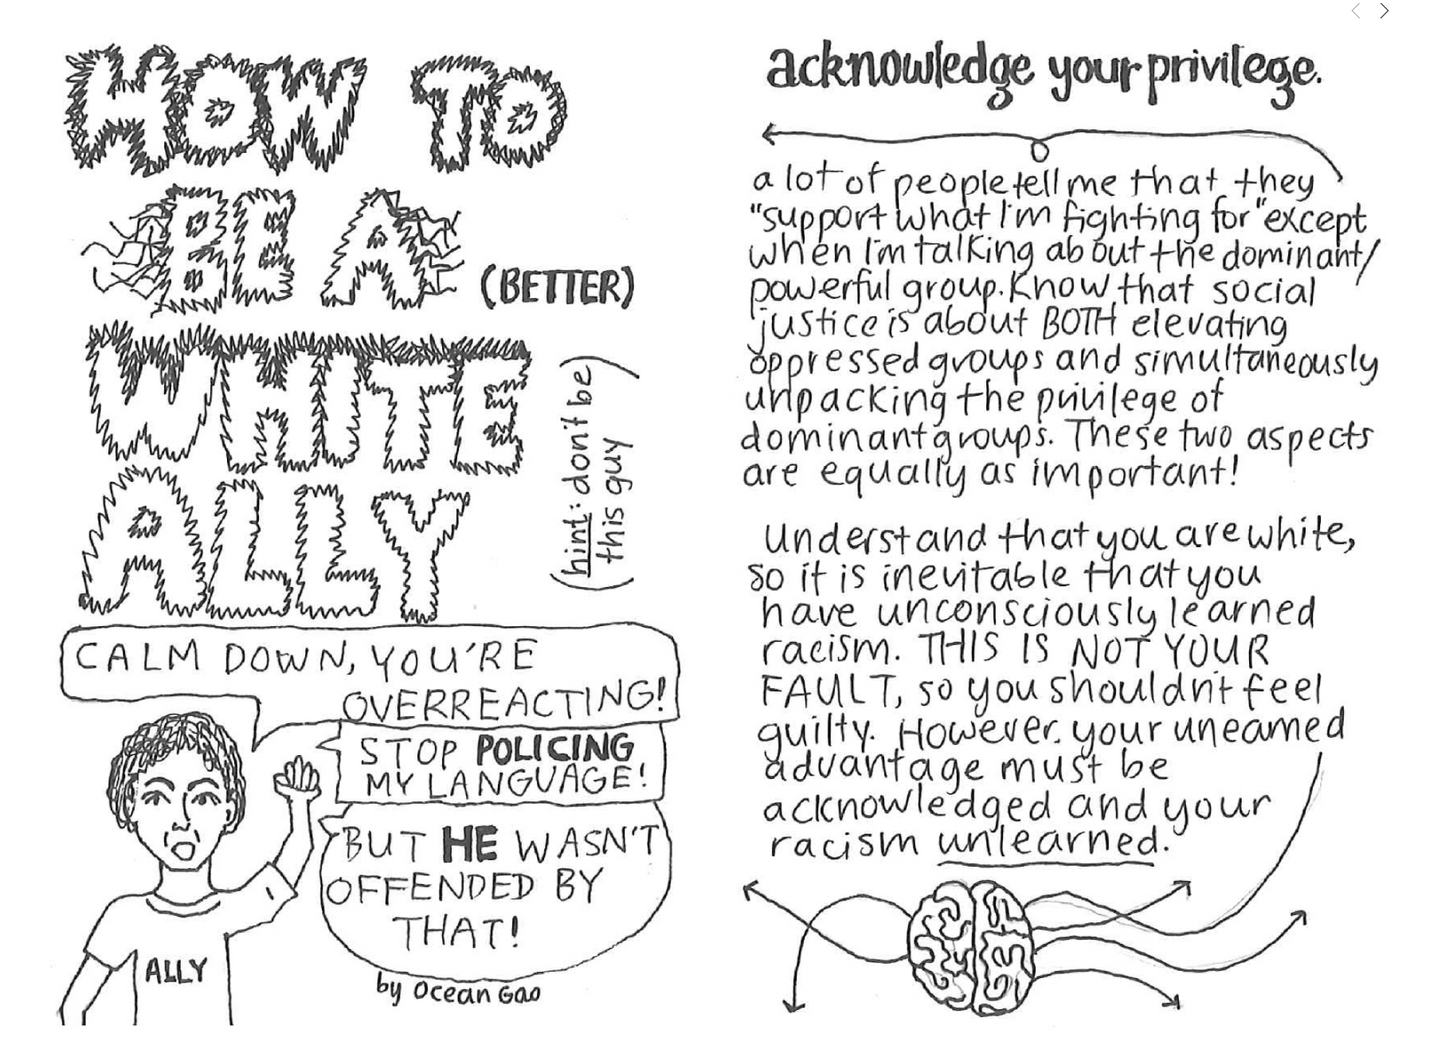 HOW TO
BE A
(BETTER)
WHITE
ALLY
(hint: don't be)
(this guy)
CALM DOWN, YOU'RE
OVERREACTING!
STOP POLICING
MY LANGUAGE!
BUT HE WASN'T
OFFENDED BY
THAT!
ALLY
by Ocean Gao
acknowledge your privilege.
a lot of people tell me that they
"support what I'm fighting for" except
when I'm talking about the dominant/
powerful group. Know that social
justice is about BOTH elevating
oppressed groups and simultaneously
unpacking the privilege of
dominant groups. These two aspects
are equally as important!
Understand that you are white,
so it is inevitable that you
have unconsciously learned
racism. THIS IS NOT YOUR
FAULT, so you shouldn't feel
guilty. However, your unearned
advantage must be
acknowledged and your
racism unlearned.